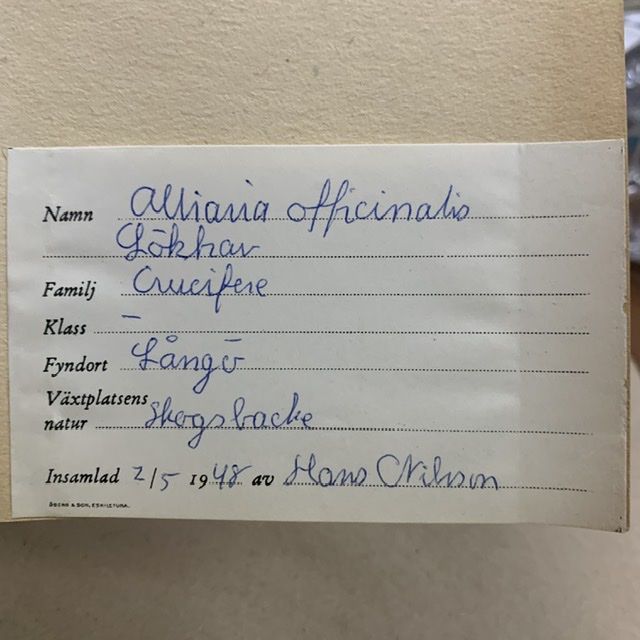 Namn Alliaria officinalis
Lökhav
Familj Crucifere
Klass –
Fyndort Långö
Växtplatsens
natur Skogsbacke
Insamlad 2/5 1948 av Hans Nilsson
ÖBERG & SON, ESKILSTUNA.